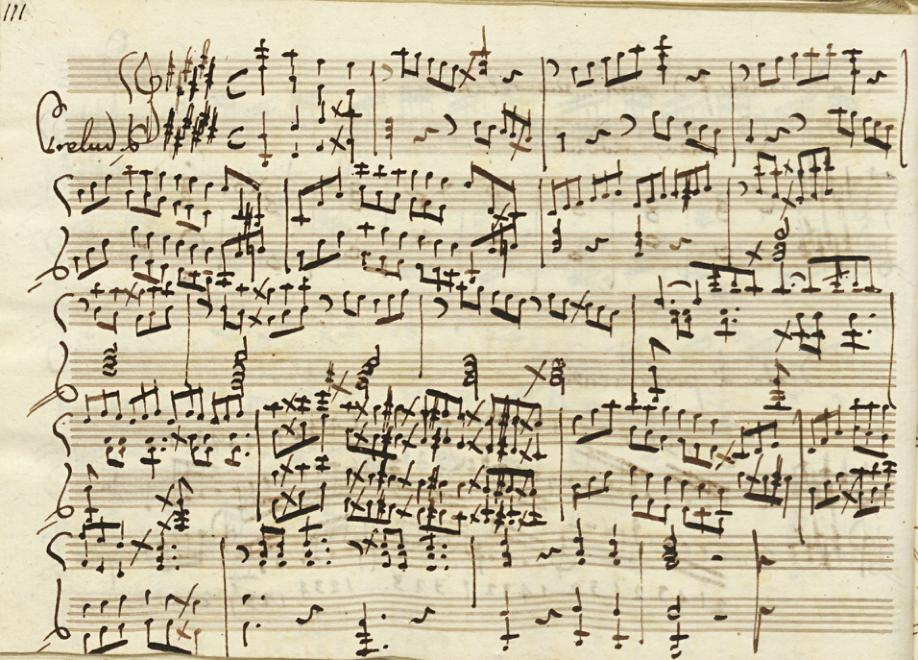 111
Prelud. 6